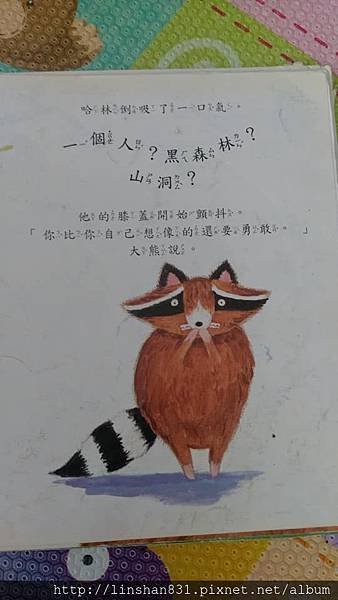 哈林倒吸了一口氣。
一個人?黑森林?
山洞?
他的膝蓋開始顫抖。
「你比你自己想像的還要勇敢。」
大熊說。
http://linshan831.pixnet.net/album